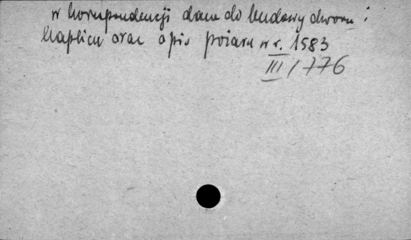 w korespondencji dane do budowy dworu i
kaplicy oraz opis pożaru w r. 1583
III/776